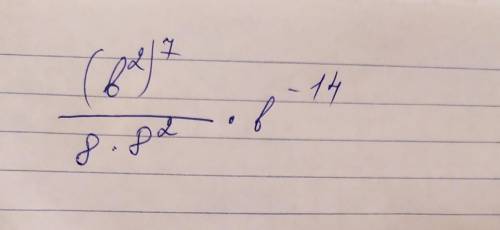 (b²)⁷
8 · 8² · b⁻¹⁴